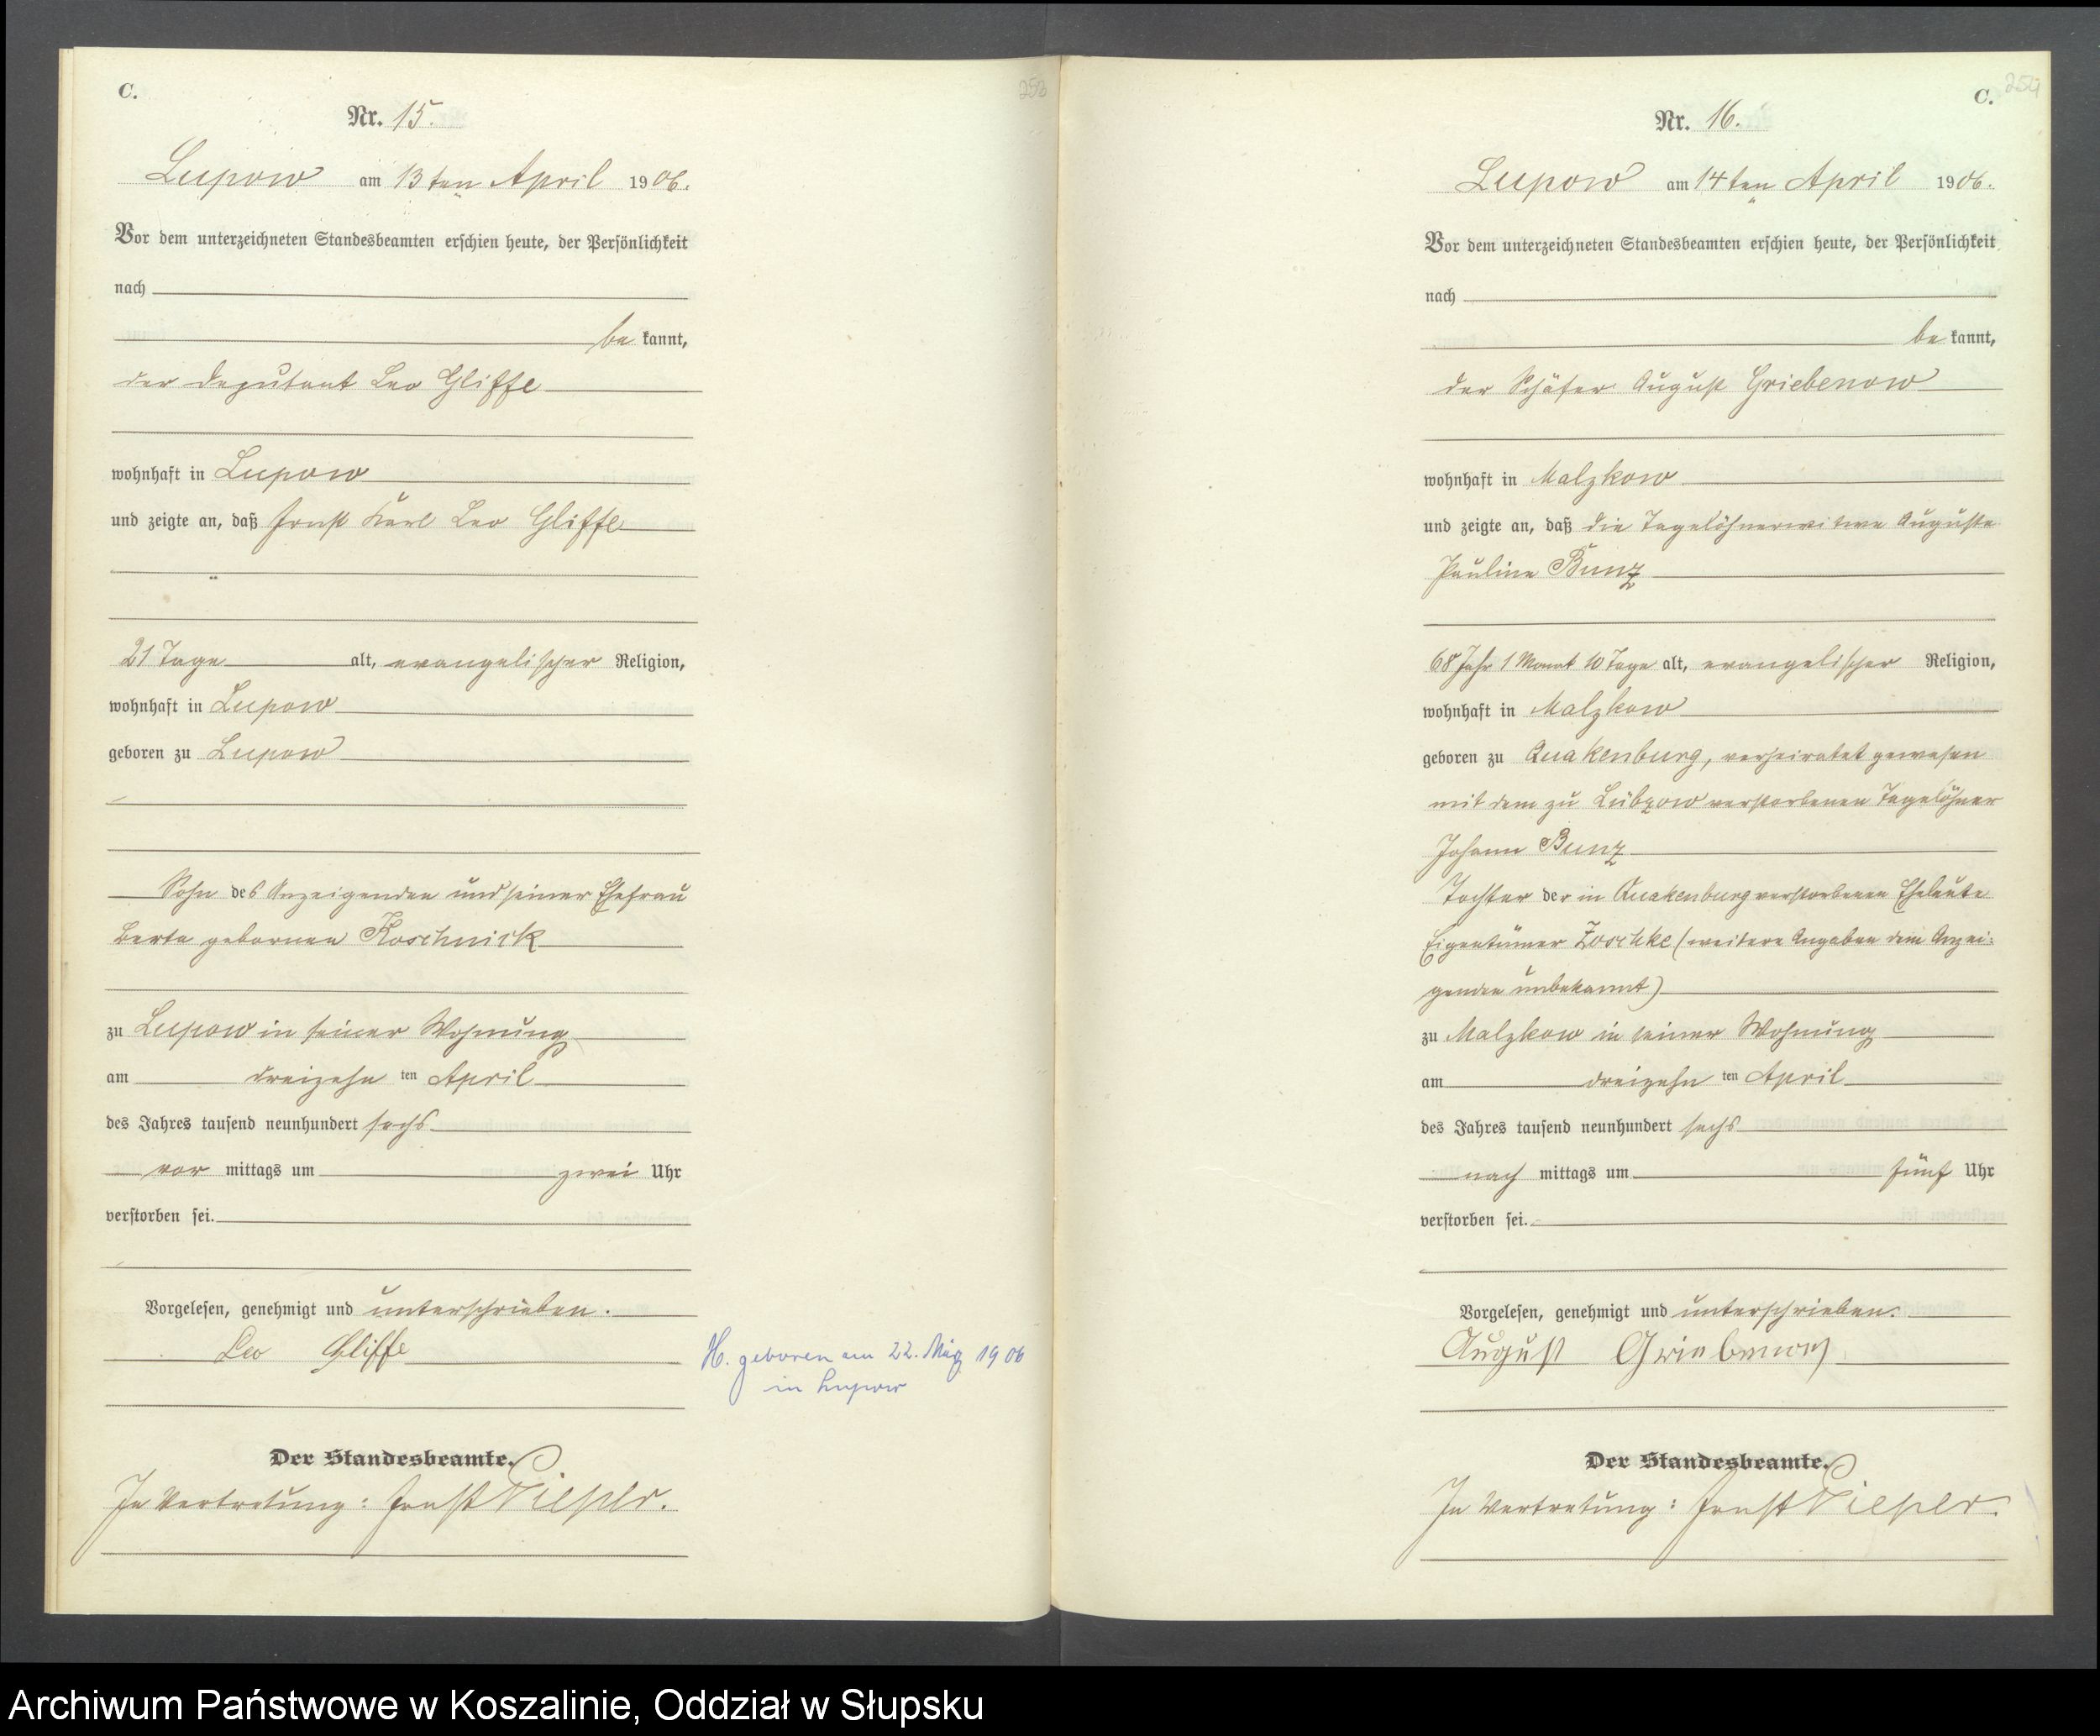 C.
253
Nr. 15.
Lupow am 13ten April 1906.
Vor dem unterzeichneten Standesbeamten erschien heute, der Persönlichkeit
nach
be kannt,
der Deputant Leo Gliffe
wohnhaft in Lupow
und zeigte an, daß Ernst Karl Leo Gliffe
21 Tage alt, evangelischer Religion,
wohnhaft in Lupow
geboren zu Lupow
Sohn des Anzeigenden und seiner Ehefrau
Berta gebornen Koschnick
zu Lupow in seiner Wohnung
am dreizehn ten April
des Jahres tausend neunhundert sechs
vor mittags um zwei Uhr
verstorben sei.
Vorgelesen, genehmigt und unterschrieben.
Leo Gliffe
H. geboren am 22. März 1906
in Lupow
Der Standesbeamte.
In Vertretung: Ernst Pieper.
C.
254
Nr. 16.
Lupow am 14ten April 1906.
Vor dem unterzeichneten Standesbeamten erschien heute, der Persönlichkeit
nach
be kannt,
der Schäfer August Griebenow
wohnhaft in Malzkow
und zeigte an, daß die Tagelöhnerwitwe Auguste
Pauline Bunz
68 Jahr 1 Monat 10 Tage alt, evangelischer Religion,
wohnhaft in Malzkow
geboren zu Quakenburg, verheiratet gewesen
mit dem zu Lübzow verstorbenen Tagelöhner
Johann Bunz
Tochter der in Quakenburg verstorbenen Eheleute
Eigentümer Zoschke (weitere Angaben dem Anzei=
genden unbekannt)
zu Malzkow in seiner Wohnung
am dreizehn ten April
des Jahres tausend neunhundert sechs
nach mittags um fünf Uhr
verstorben sei.
Vorgelesen, genehmigt und unterschrieben.
August Griebenow
Der Standesbeamte.
In Vertretung: Ernst Pieper.
Archiwum Państwowe w Koszalinie, Oddział w Słupsku